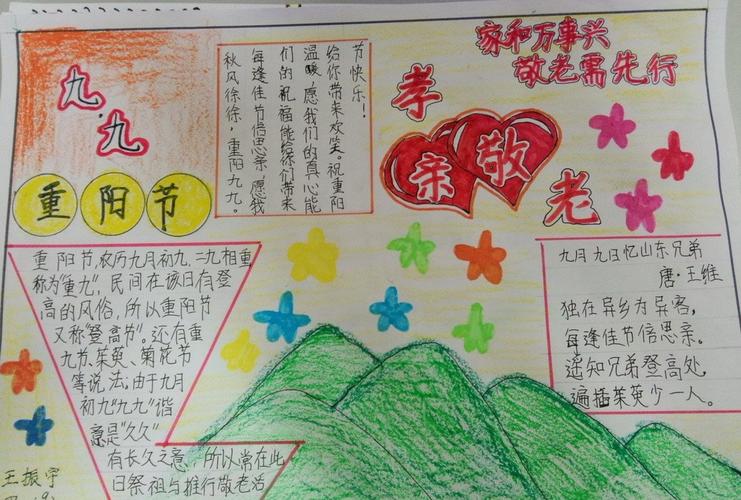 九.九
重阳节
节快乐!
给你带来欢笑。祝重阳
温暖，愿我们的真心能
们的祝福能给你们带来
每逢佳节倍思亲，愿我
秋风徐徐，重阳九九。
家和万事兴
敬老需先行
孝
亲敬
老
重阳节，农历九月初九，二九相重
称为"重九"，民间在该日有登
高的风俗，所以重阳节
又称"登高节"。还有重
九节、茱萸、菊花节
等说法，由于九月
初九"九九"谐
意是"久久"
有长久之意，所以常在此
日祭祖与推行敬老活
九月九日忆山东兄弟
唐·王维
独在异乡为异客，
每逢佳节倍思亲。
遥知兄弟登高处
遍插茱萸少一人。
王振宇